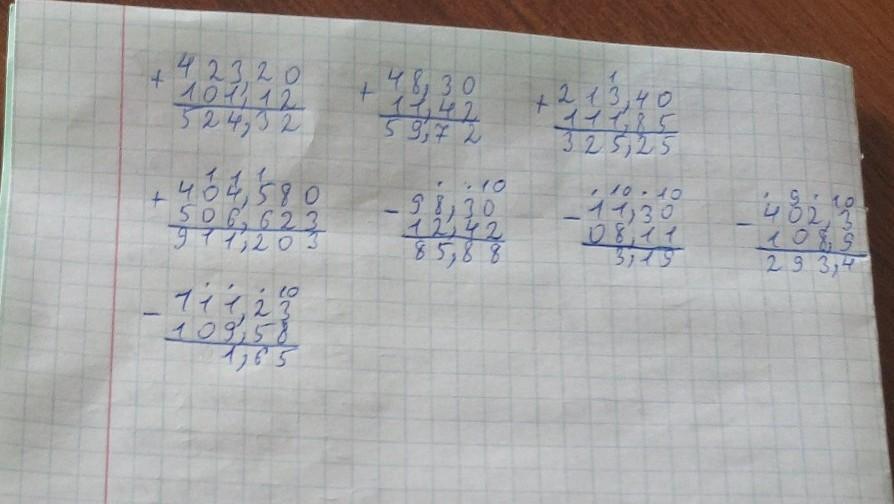 + 423,20
101,12
524,32
+ 48,30
11,42
59,72
1
+ 213,40
111,85
325,25
1 1 1
+ 404,580
506,623
911,203
. . 10
- 98,30
12,42
85,88
. 10 . 10
- 11,30
08,11
3,19
. 9 . 10
- 402,3
108,9
293,4
. . . 10
- 111,23
109,58
1,65